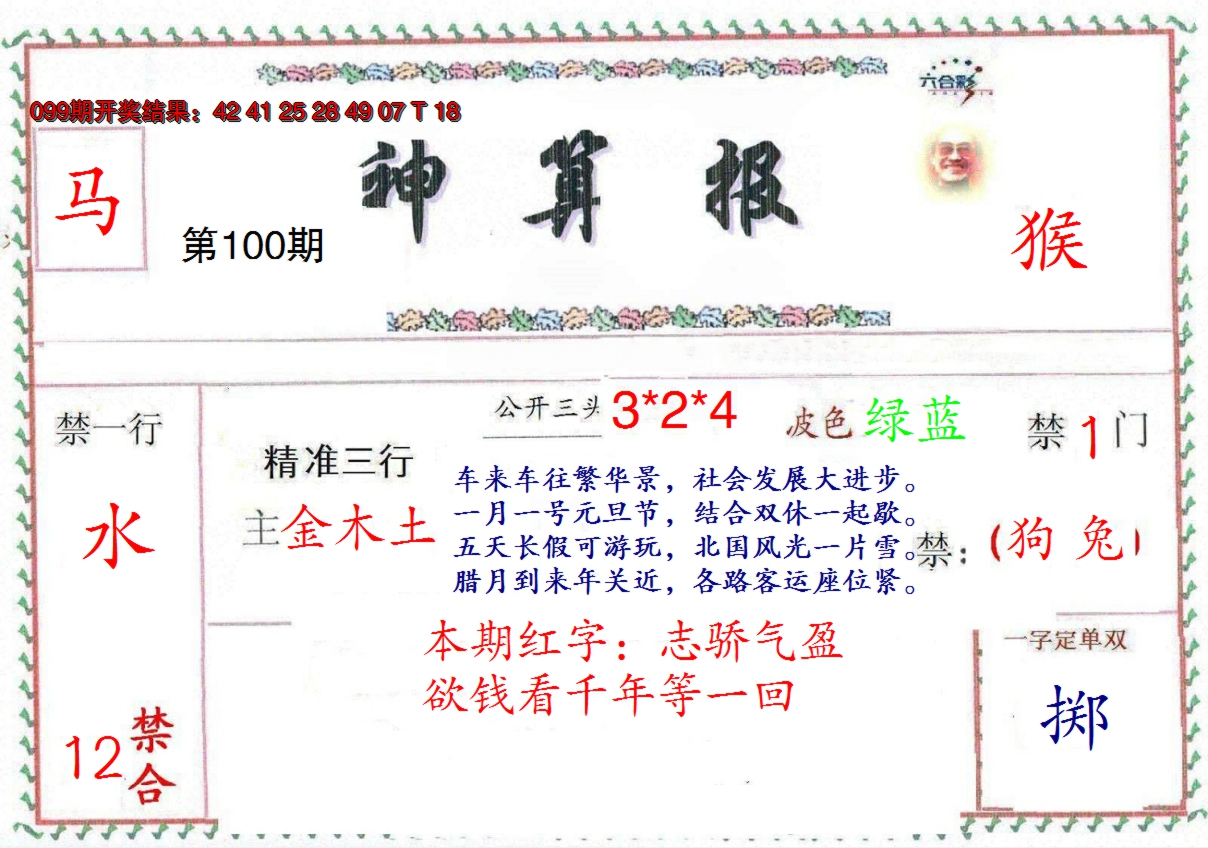 六合彩
099期开奖结果：42 41 25 28 49 07 T 18
神算报
马
第100期
猴
公开三头 3*2*4
波色 绿蓝
禁1门
禁一行
精准三行
水
主金木土
车来车往繁华景，社会发展大进步。
一月一号元旦节，结合双休一起歇。
五天长假可游玩，北国风光一片雪。
腊月到来年关近，各路客运座位紧。
禁：（狗 兔）
本期红字：志骄气盈
欲钱看千年等一回
一字定单双
掷
12禁合